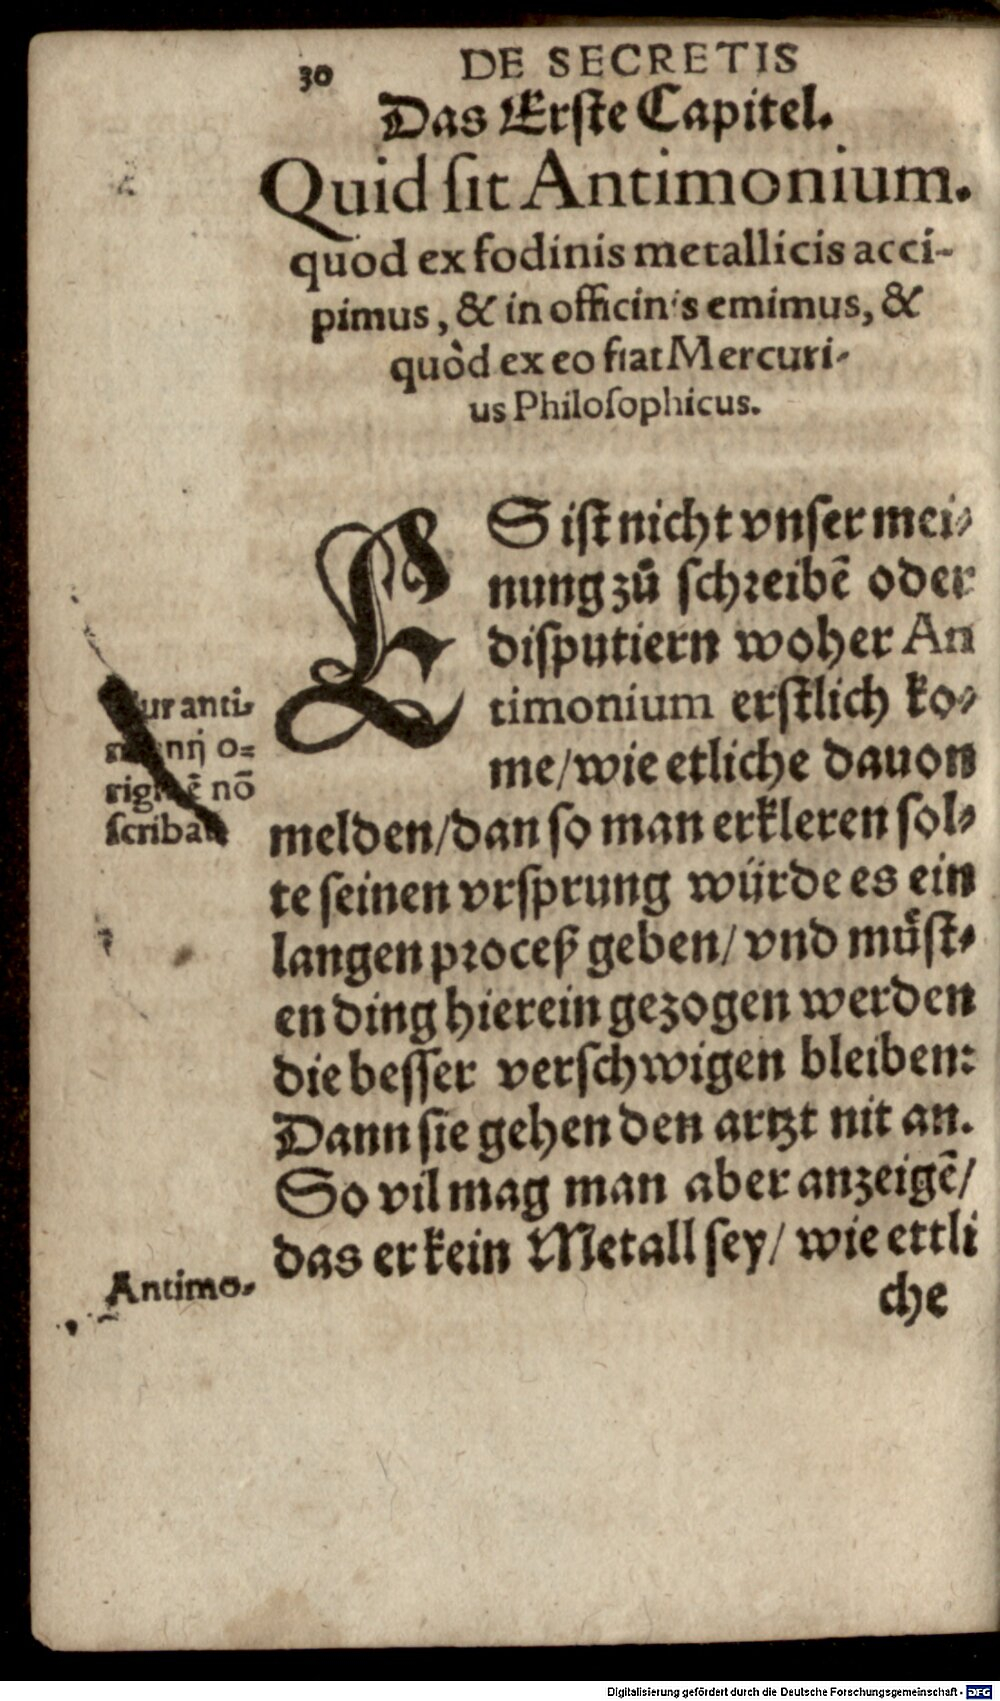 30 DE SECRETIS
Das Erſte Capitel.
Quid ſit Antimonium.
quod ex fodinis metallicis acci-
pimus, & in officinis emimus, &
quòd ex eo fiat Mercuri-
us Philoſophicus.
ES iſt nicht vnſer mei⸗
nung zů ſchreibē oder
diſputiern woher An
timonium erſtlich ko⸗
me/wie etliche dauon
melden/dan ſo man erkleren ſol⸗
te ſeinen vrſprung würde es ein
langen proceß geben/ vnd můſt⸗
en ding hierein gezogen werden
die beſſer verſchwigen bleiben:
Dann ſie gehen den artzt nit an.
So vil mag man aber anzeigē/
das er kein Metall ſey/ wie ettli
che
anti-
o=
nō
Antimo-
Digitalisierung gefördert durch die Deutsche Forschungsgemeinschaft - DFG